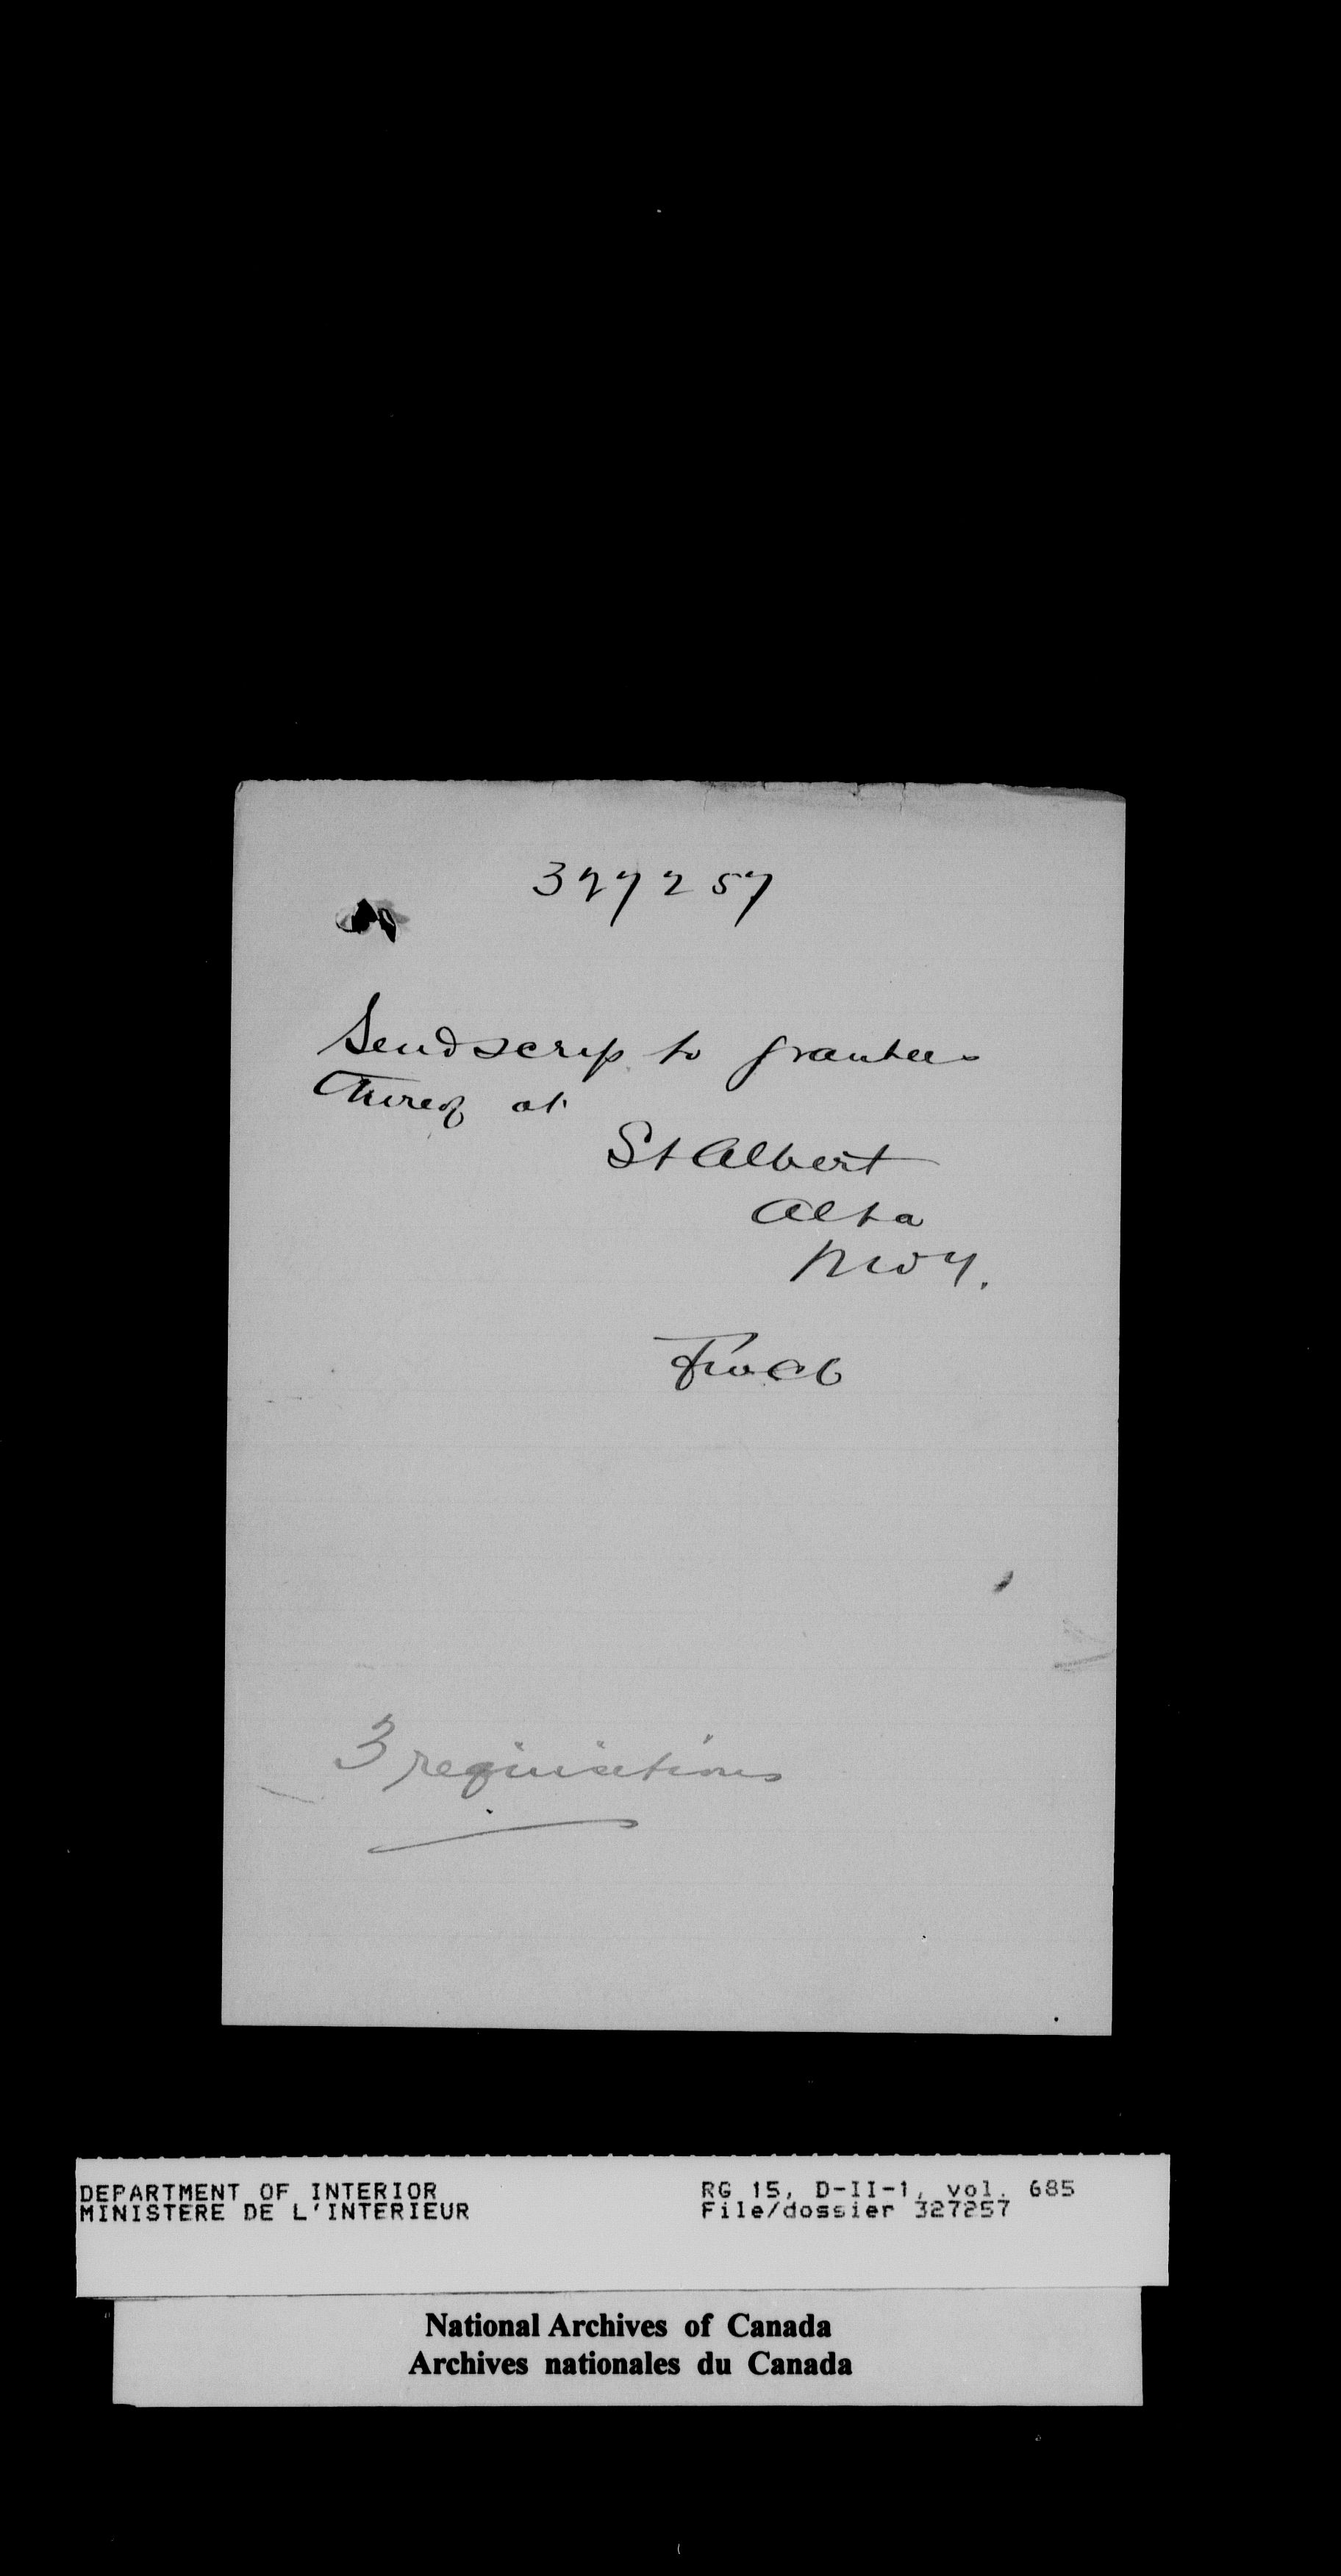 327257
Send scrip to grantees
thereof at
St Albert
Alta
NWT.
3 requisitions
DEPARTMENT OF INTERIOR
MINISTERE DE L'INTERIEUR
RG 15, D-II-1, vol. 685
File/dossier 327257
National Archives of Canada
Archives nationales du Canada